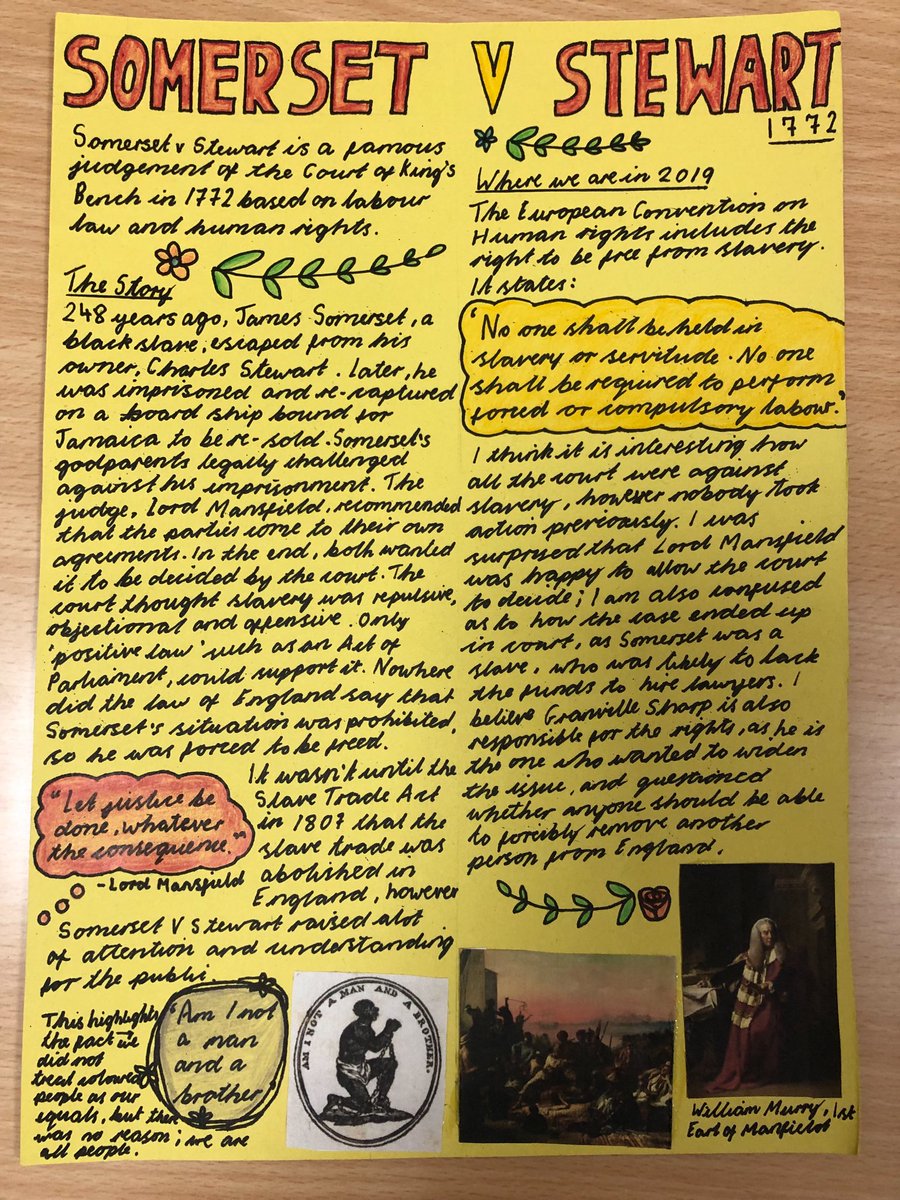 SOMERSET V STEWART
1772
Somerset v Stewart is a famous
judgement of the Court of King's
Bench in 1772 based on labour
law and human rights.
The Story
248 years ago, James Somerset, a
black slave, escaped from his
owner, Charles Stewart. Later, he
was imprisoned and re-captured
on a board ship bound for
Jamaica to be re-sold. Somerset's
godparents legally challenged
against his imprisonment. The
judge, Lord Mansfield, recommended
that the parties come to their own
agreements. In the end, both wanted
it to be decided by the court. The
court thought slavery was repulsive,
objectional and offensive. Only
'positive law' such as an Act of
Parliament, could support it. Nowhere
did the law of England say that
Somerset's situation was prohibited,
so he was forced to be freed.
"Let justice be
done, whatever
the consequence."
- Lord Mansfield
It wasn't until the
Slave Trade Act
in 1807 that the
slave trade was
abolished in
England, however
Somerset V Stewart raised alot
of attention and understanding
for the public.
This highlights
the fact we
did not
treat coloured
people as our
equals, but there
was no reason; we are
all people.
"Am I not
a man
and a
brother"
AM I NOT A MAN AND A BROTHER.
Where we are in 2019
The European Convention on
Human rights includes the
right to be free from slavery.
It states:
'No one shall be held in
slavery or servitude. No one
shall be required to perform
forced or compulsory labour.'
I think it is interesting how
all the court were against
slavery, however nobody took
action previously. I was
surprised that Lord Mansfield
was happy to allow the court
to decide; I am also confused
as to how the case ended up
in court, as Somerset was a
slave, who was likely to lack
the funds to hire lawyers. I
believe Granville Sharp is also
responsible for the rights, as he is
the one who wanted to widen
the issue, and questioned
whether anyone should be able
to forcibly remove another
person from England.
William Murry, 1st
Earl of Mansfield